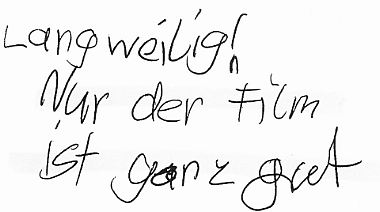 Langweilig!
Nur der Film
ist ganz gut